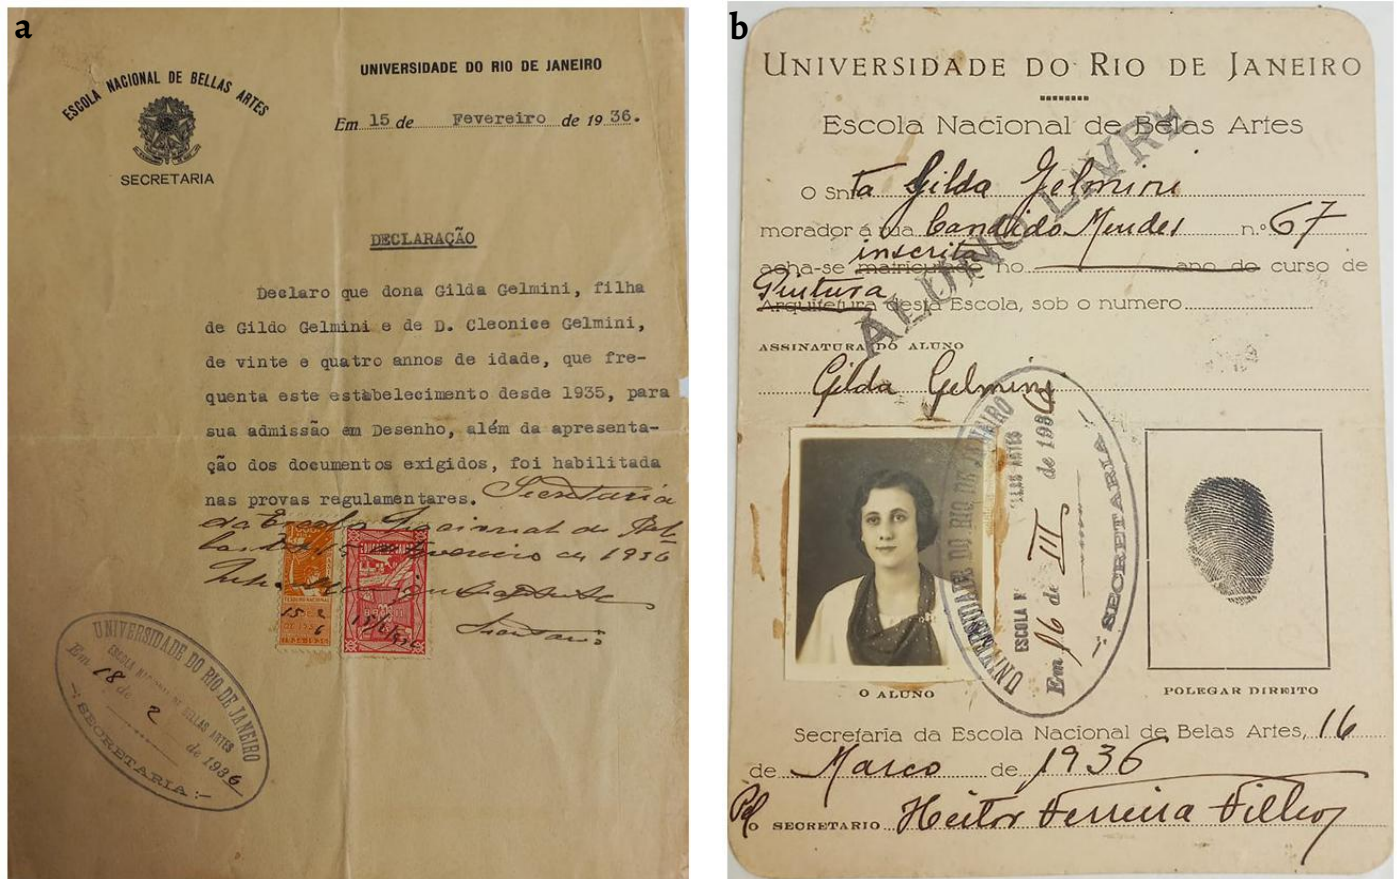 a
ESCOLA NACIONAL DE BELLAS ARTES
SECRETARIA
UNIVERSIDADE DO RIO DE JANEIRO
Em 15 de Fevereiro de 1936.
DECLARAÇÃO
Declaro que dona Gilda Gelmini, filha
de Gildo Gelmini e de D. Cleonice Gelmini,
de vinte e quatro annos de idade, que fre-
quenta este estabelecimento desde 1935, para
sua admissão em Desenho, além da apresenta-
ção dos documentos exigidos, foi habilitada
nas provas regulamentares. Secretaria
da Escola Nacional de Bel-
las Artes, 15 de Fevereiro de 1936
Secretario
UNIVERSIDADE DO RIO DE JANEIRO
ESCOLA NACIONAL DE BELLAS ARTES
Em 18 de 2 de 1936
SECRETARIA
b
UNIVERSIDADE DO RIO DE JANEIRO
Escola Nacional de Belas Artes
O Snrta Gilda Gelmini
morador á rua Candido Mendes n.º 67
inscrita
acha-se matriculado no ano do curso de
Pintura
Arquitetura desta Escola, sob o numero
ALUNO LIVRE
ASSINATURA DO ALUNO
Gilda Gelmini
UNIVERSIDADE DO RIO DE JANEIRO
ESCOLA N BELAS ARTES
Em 16 de III de 1936
SECRETARIA
O ALUNO
POLEGAR DIREITO
Secretaria da Escola Nacional de Belas Artes, 16
de Marco de 1936
Pel o SECRETARIO Heitor Ferreira Filho